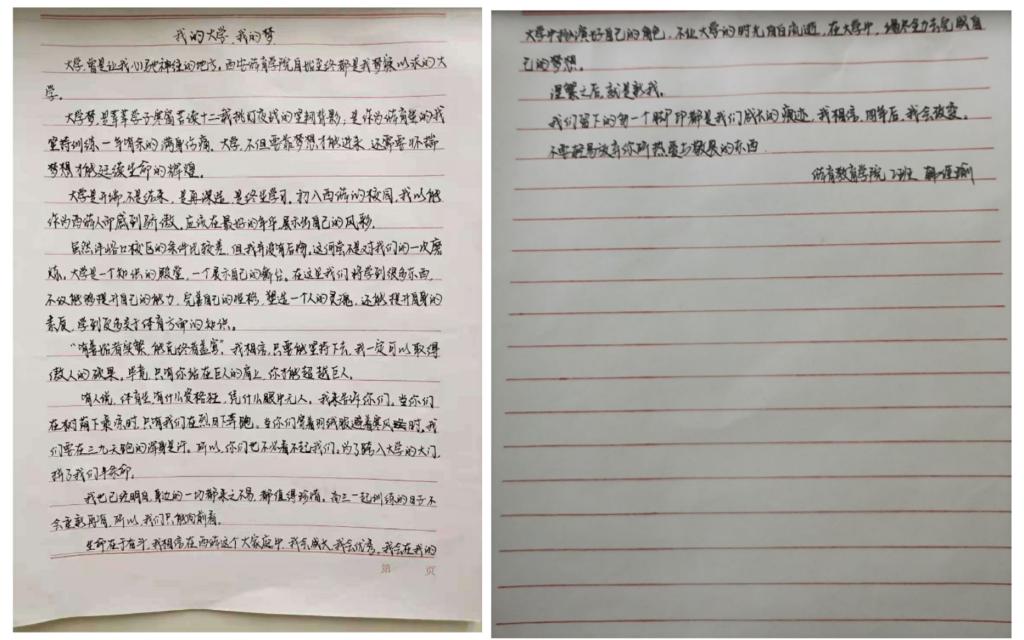 我的大学,我的梦
大学,曾是让我心驰神往的地方。西安体育学院自始至终都是我梦寐以求的大
学。
大学梦,是莘莘学子寒窗苦读十二载挑灯夜战的坚韧背影,是作为体育生的我
坚持训练一年有余的满身伤痛。大学,不但要靠梦想才能进来,还需要怀揣
梦想才能延续生命的辉煌。
大学是开端,不是结束,是再深造,是终生学习。初入西体的校园,我以能
作为西体人而感到骄傲。应该在最好的年华展示出自己的风彩。
虽然沣峪口校区的条件比较差,但我并没有后悔,这何尝不是对我们的一次磨
炼。大学是一个知识的殿堂,一个展示自己的舞台。在这里我们将学到很多东西,
不仅能够提升自己的能力,完善自己的性格,塑造一个人的灵魂,还能提升自身的
素质,学到更多关于体育方面的知识。
“有善始者实繁,能克终者盖寡”。我相信,只要能坚持下去,我一定可以取得
傲人的硕果。毕竟,只有你站在巨人的肩上,你才能超越巨人。
有人说,体育生有什么资格狂,凭什么眼中无人。我来告诉你们。当你们
在树荫下乘凉时,只有我们在烈日下奔跑。当你们穿着羽绒服避着寒风时,我
们要在三九天跑的浑身是汗。所以,你们也不必看不起我们。为了踏入大学的大门,
拼了我们半条命。
我也已经明白,身边的一切都来之不易,都值得珍惜。高三一起训练的日子不
会重新再有,所以,我们只能向前看。
生命在于奋斗,我相信在西体这个大家庭中,我会成长,我会优秀,我会在我的
第 页
大学中扮演好自己的角色,不让大学的时光白白流逝,在大学中,竭尽全力去完成自
己的梦想。
涅槃之后,就是新我。
我们留下的每一个脚印都是我们成长的痕迹,我相信,四年后,我会改变。
不要轻易放弃你所热爱与敬畏的东西
体育教育学院 2班